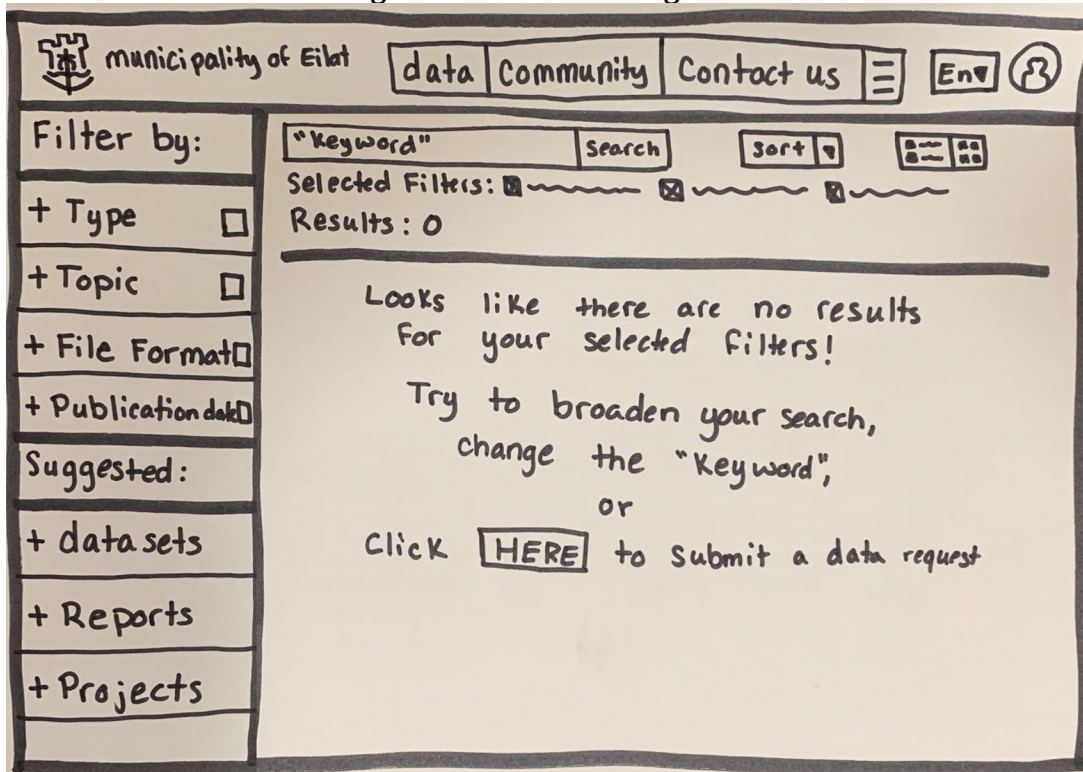 municipality of Eilat
data
Community
Contact us
En
Filter by:
+ Type
+ Topic
+ File Format
+ Publication date
Suggested:
+ datasets
+ Reports
+ Projects
"Keyword"
Search
Sort
Selected Filters:
Results: 0
Looks like there are no results
For your selected filters!
Try to broaden your search,
change the "Keyword",
or
Click HERE to submit a data request